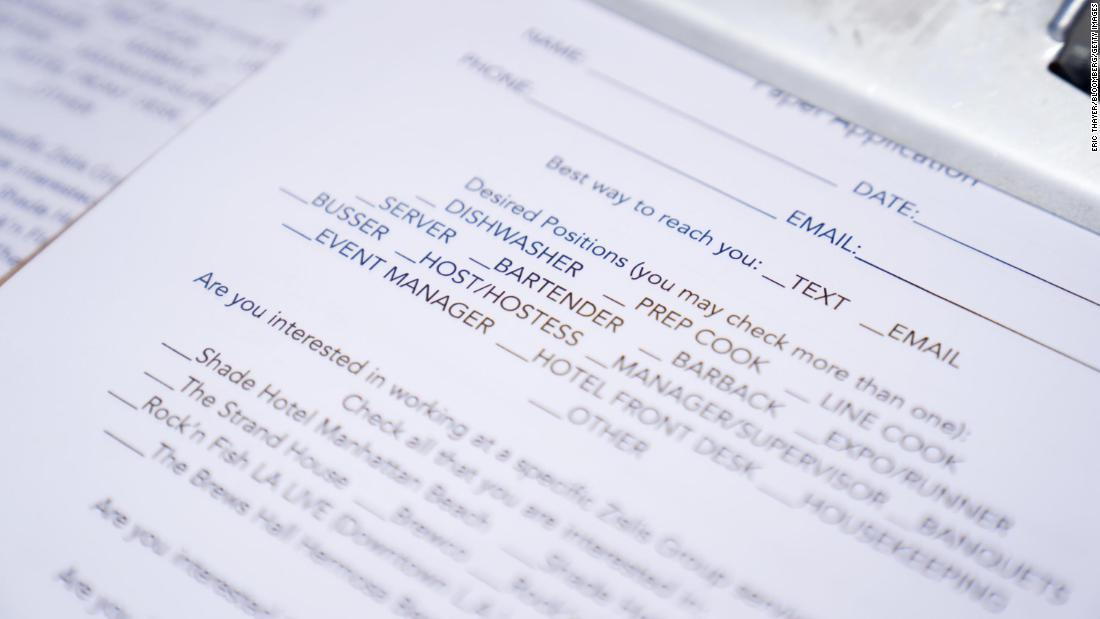 Paper Application
NAME: DATE:
PHONE EMAIL:
Best way to reach you: __TEXT __EMAIL
Desired Positions (you may check more than one):
__ DISHWASHER __ PREP COOK __ LINE COOK
__SERVER __BARTENDER __ BARBACK __EXPO/RUNNER
__BUSSER __HOST/HOSTESS __MANAGER/SUPERVISOR __BANQUETS
__EVENT MANAGER __HOTEL FRONT DESK __HOUSEKEEPING
__OTHER
Are you interested in working at a specific Zislis Group
Check all that you are interested in
__Shade Hotel Manhattan Beach __Shade
__The Strand House __Brewco
__Rock'n Fish LA LIVE (Downtown L.A.
__The Brews Hall Hermosa
Are you interested
Are you
ERIC THAYER/BLOOMBERG/GETTY IMAGES